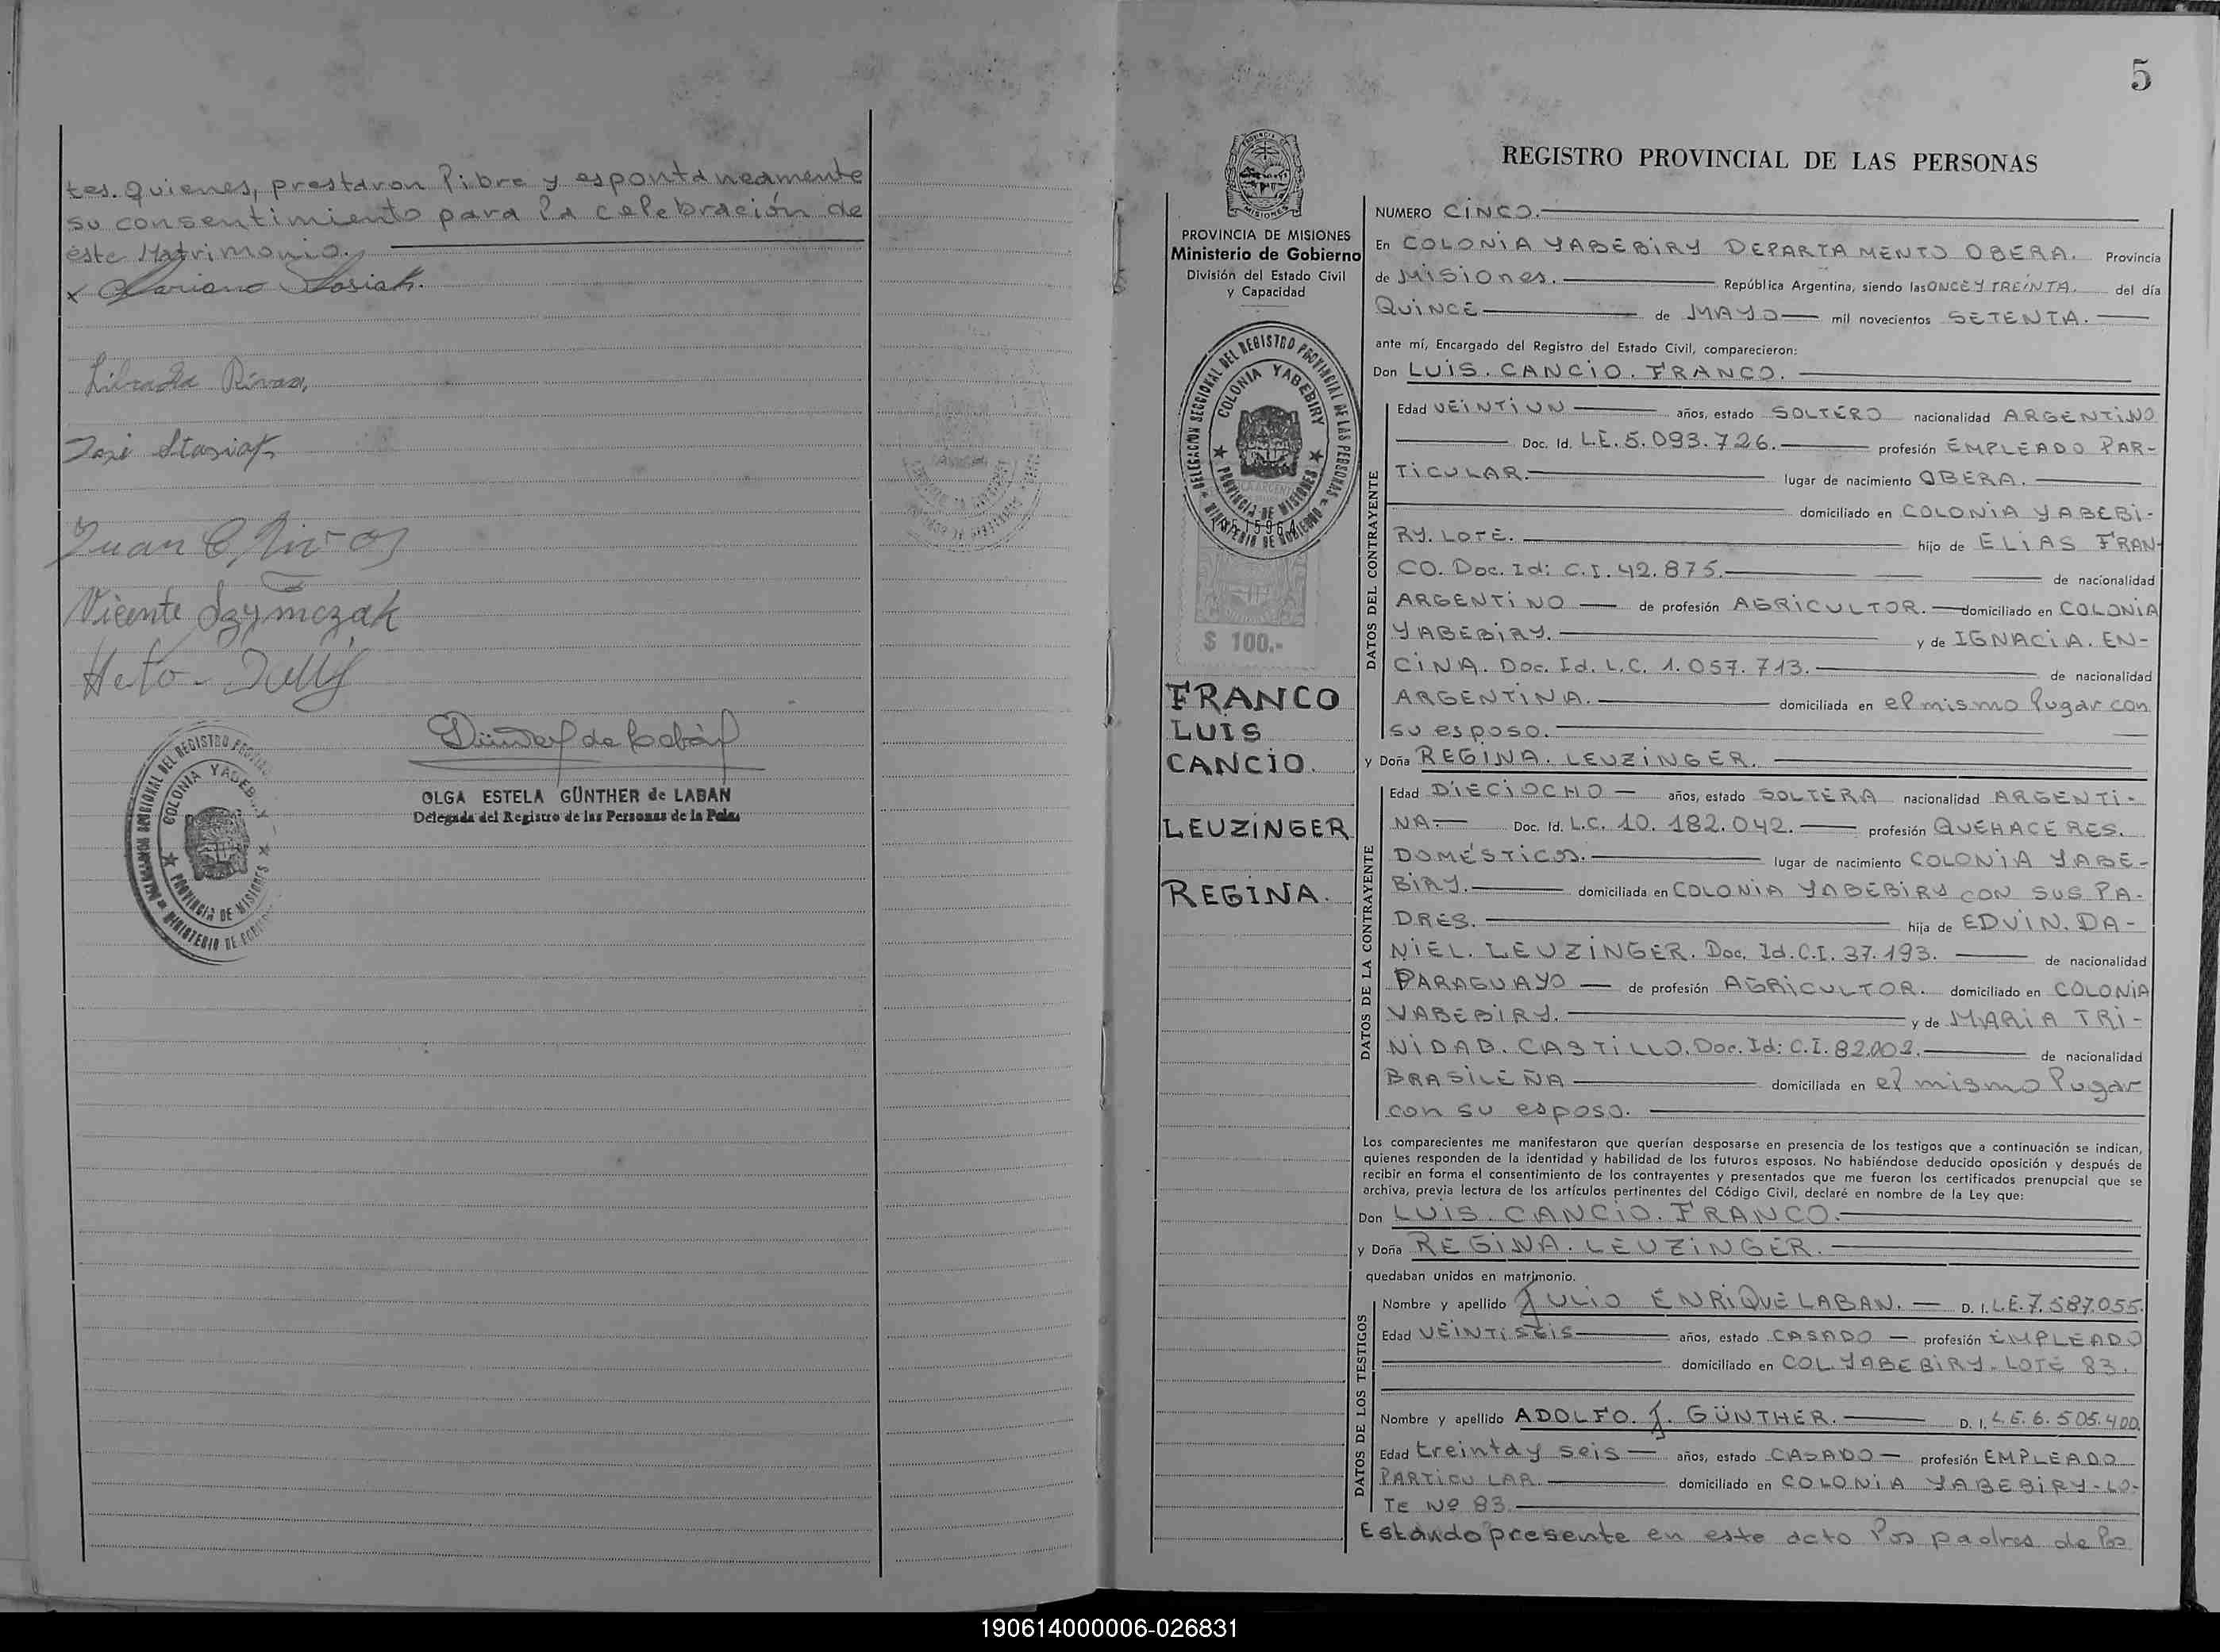 tes. Quienes, prestaron libre y espontáneamente
su consentimiento para la celebración de
éste Matrimonio.
x Mariano Stasiak.
Librada Rivas,
José Stasiak
Juan C Rivas
Vicente Szymczak
OLGA ESTELA GÜNTHER de LABAN
Delegada del Registro de las Personas de la Polar
COLONIA YABEBIRY
PROVINCIA DE MISIONES
5
REGISTRO PROVINCIAL DE LAS PERSONAS
MISIONES
PROVINCIA DE MISIONES
Ministerio de Gobierno
División del Estado Civil
y Capacidad
DELEGACION SECCIONAL DEL REGISTRO PROVINCIAL DE LAS PERSONAS
MINISTERIO DE GOBIERNO
COLONIA YABEBIRY
PROVINCIA DE MISIONES
$ 100.-
FRANCO
LUIS
CANCIO.
LEUZINGER
REGINA.
NUMERO CINCO.
En COLONIA YABEBIRY DEPARTAMENTO OBERA. Provincia
de Misiones. República Argentina, siendo las ONCE Y TREINTA. del día
QUINCE de MAYO mil novecientos SETENTA.
ante mí, Encargado del Registro del Estado Civil, comparecieron:
Don LUIS. CANCIO. FRANCO.
DATOS DEL CONTRAYENTE
Edad VEINTIUN años, estado SOLTERO nacionalidad ARGENTINO
Doc. Id. L.E. 5.093.726. profesión EMPLEADO PAR-
TICULAR. lugar de nacimiento OBERA.
domiciliado en COLONIA YABEBI-
RY. LOTE. hijo de ELIAS FRAN-
CO. Doc. Id: C.I. 42.875. de nacionalidad
ARGENTINO de profesión AGRICULTOR. domiciliado en COLONIA
YABEBIRY. y de IGNACIA. EN-
CINA. Doc. Id. L.C. 1.057.713. de nacionalidad
ARGENTINA. domiciliada en el mismo lugar con
su esposo.
y Doña REGINA. LEUZINGER.
DATOS DE LA CONTRAYENTE
Edad DIECIOCHO años, estado SOLTERA nacionalidad ARGENTI-
NA. Doc. Id. L.C. 10.182.042. profesión QUEHACERES.
DOMÉSTICOS. lugar de nacimiento COLONIA YABE-
BIRY. domiciliada en COLONIA YABEBIRY CON SUS PA-
DRES. hija de EDVIN. DA-
NIEL. LEUZINGER. Doc. Id. C.I. 37.193. de nacionalidad
PARAGUAYO de profesión AGRICULTOR. domiciliado en COLONIA
YABEBIRY. y de MARIA TRI-
NIDAD. CASTILLO. Doc. Id: C.I. 82.002. de nacionalidad
BRASILEÑA domiciliada en el mismo lugar
con su esposo.
Los comparecientes me manifestaron que querían desposarse en presencia de los testigos que a continuación se indican,
quienes responden de la identidad y habilidad de los futuros esposos. No habiéndose deducido oposición y después de
recibir en forma el consentimiento de los contrayentes y presentados que me fueron los certificados prenupcial que se
archiva, previa lectura de los artículos pertinentes del Código Civil, declaré en nombre de la Ley que:
Don LUIS. CANCIO. FRANCO.
y Doña REGINA. LEUZINGER.
quedaban unidos en matrimonio.
DATOS DE LOS TESTIGOS
Nombre y apellido JULIO ENRIQUE LABAN. D. I. L.E. 7.587.055.
Edad VEINTISEIS años, estado CASADO profesión EMPLEADO
domiciliado en COL. YABEBIRY. LOTE 83.
Nombre y apellido ADOLFO. J. GÜNTHER. D. I. L.E. 6.505.400.
Edad treinta y seis años, estado CASADO profesión EMPLEADO
PARTICULAR domiciliado en COLONIA YABEBIRY-LO-
TE Nº 83.
Estando presente en este acto los padres de los
190614000006-026831